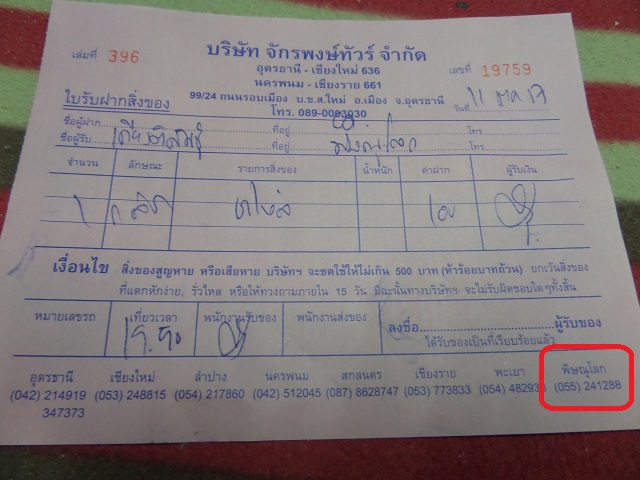 เล่มที่ 396
บริษัท จักรพงษ์ทัวร์ จำกัด
อุดรธานี - เชียงใหม่ 636
นครพนม - เชียงราย 661
เลขที่ 19759
99/24 ถนนรอบเมือง บ.ข.ส.ใหม่ อ.เมือง จ.อุดรธานี
ใบรับฝากสิ่งของ
โทร. 089-0003930
วันที่ 11
ชื่อผู้ฝาก ที่อยู่ โทร
ชื่อผู้รับ ที่อยู่ พิษณุโลก โทร
จำนวน ลักษณะ รายการสิ่งของ น้ำหนัก ค่าฝาก ผู้รับเงิน
1 100
เงื่อนไข สิ่งของสูญหาย หรือเสียหาย บริษัทฯ จะชดใช้ให้ไม่เกิน 500 บาท (ห้าร้อยบาทถ้วน) ยกเว้นสิ่งของ
ที่แตกหักง่าย, รั่วไหล หรือให้ทวงถามภายใน 15 วัน มิฉะนั้นทางบริษัทฯ จะไม่รับผิดชอบใดๆทั้งสิ้น
หมายเลขรถ เที่ยวเวลา พนักงานรับของ พนักงานส่งของ
ลงชื่อ....................ผู้รับของ
ได้รับของเป็นที่เรียบร้อยแล้ว
อุดรธานี เชียงใหม่ ลำปาง นครพนม สกลนคร เชียงราย พะเยา พิษณุโลก
(042) 214919 (053) 248815 (054) 217860 (042) 512045 (087) 8628747 (053) 773833 (054) 48293 (055) 241288
347373